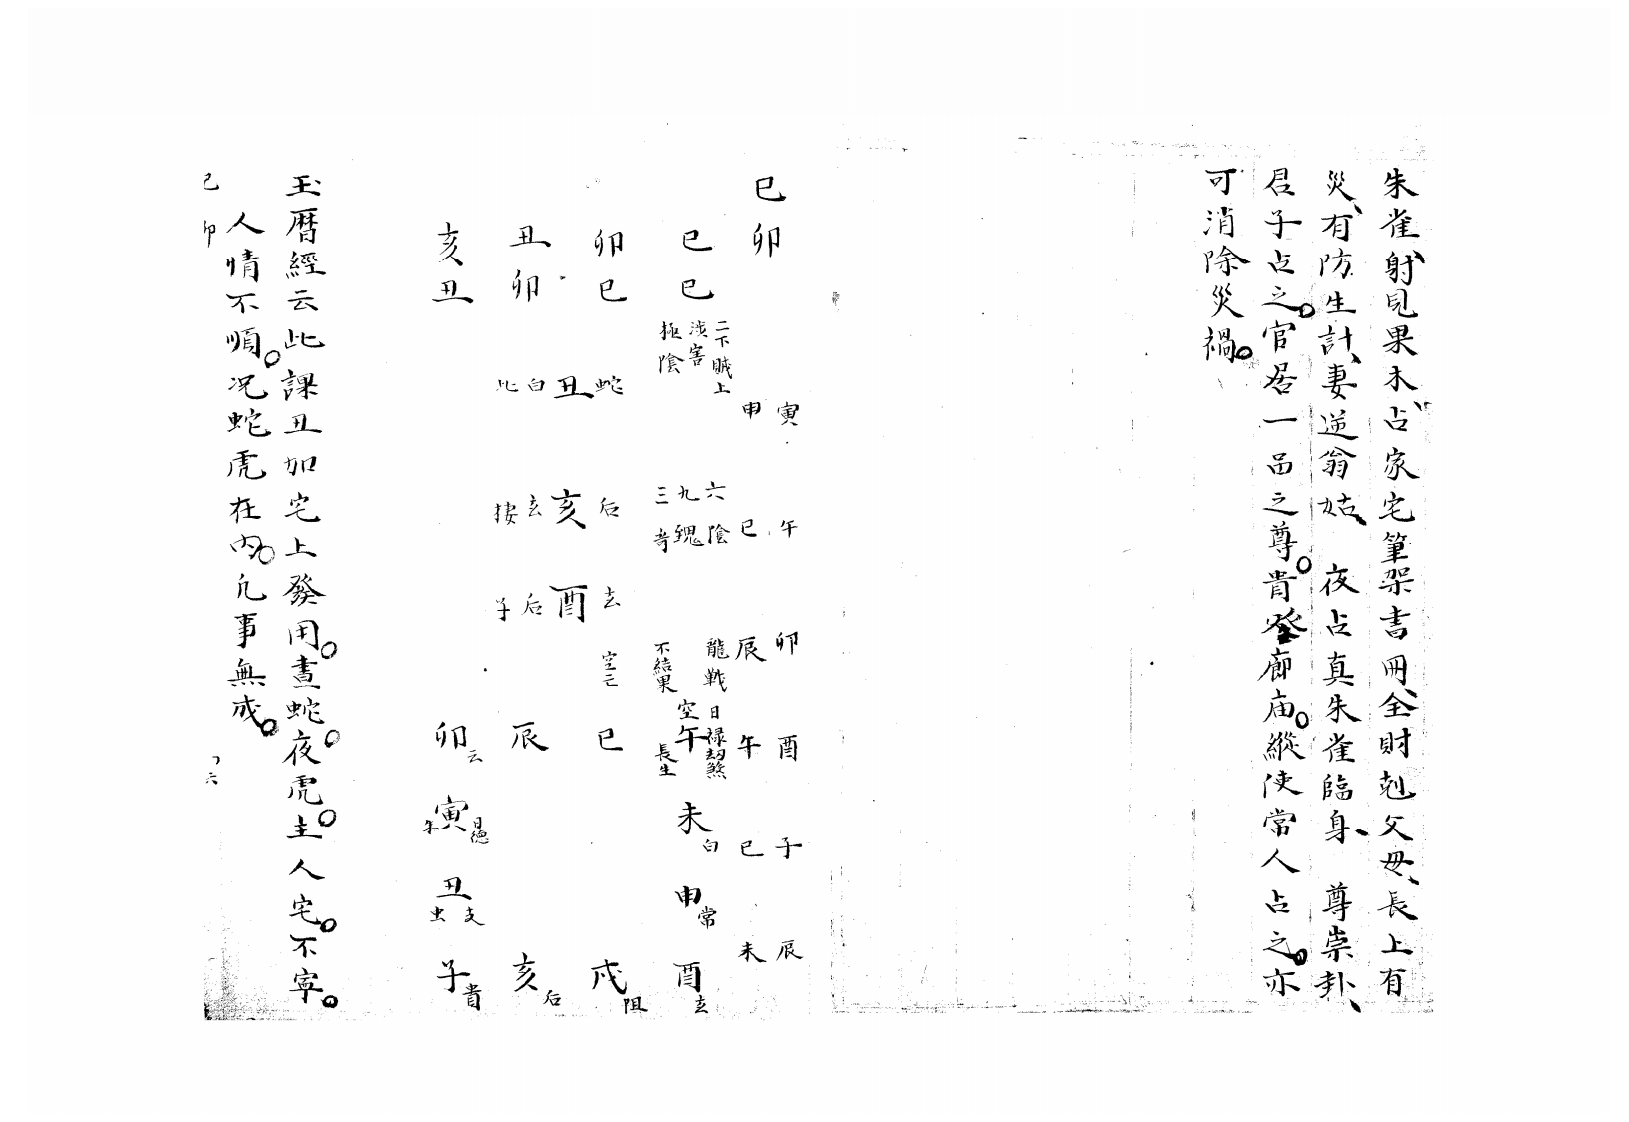 朱雀射見果木占家宅筆架書冊全財剋父母長上有
災有防生計妻逆翁姑　夜占真朱雀臨身　尊崇卦
君子占之官居一品之尊貴登廊庙縱使常人占之亦
可消除災禍
巳卯
寅　午　卯　酉　子　辰
申　巳　辰　午　巳　未
巳巳
二下賊上
涉害
極陰
六陰
九醜
三奇
龍戰
不結果
日祿劫煞
空午
長生
未白
申常
酉玄
卯巳
蛇丑白
后亥玄
玄酉后子
巳
戌
丑卯
辰
亥后
亥丑
卯
寅日德
丑支
子貴
玉曆經云此課丑加宅上發用晝蛇夜虎主人宅不寧
人情不順况蛇虎在內凡事無成
巳卯
六